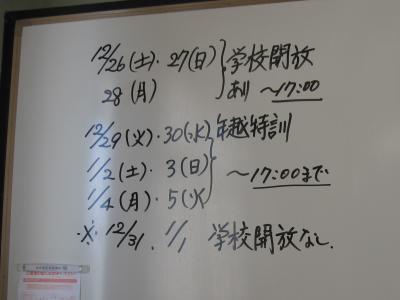 12/26(土)・27(日) 学校開放
28(月) あり ～17:00
12/29(火)・30(水) 年越特訓
1/2(土)・3(日) ～17:00まで
1/4(月)・5(火
※ 12/31. 1/1 学校開放なし.